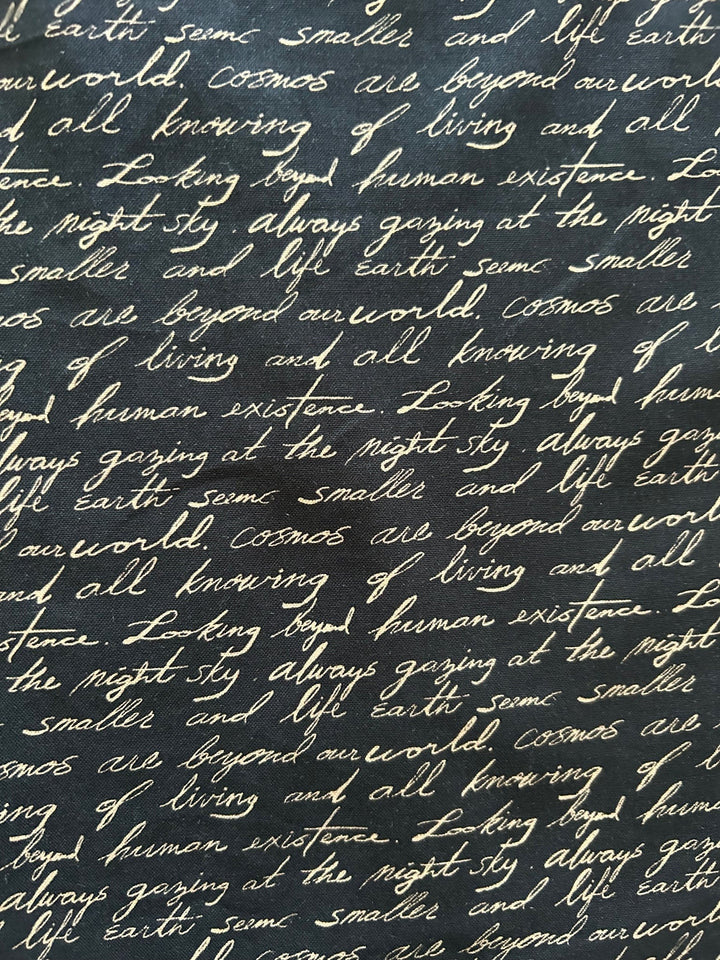 life earth seems smaller and life earth
our world. cosmos are beyond our world
and all knowing of living and all
existence. Looking beyond human existence. Lo
the night sky. always gazing at the night
smaller and life earth seems smaller
cosmos are beyond our world. cosmos are
of living and all knowing of
beyond human existence. Looking beyond human
always gazing at the night sky. always gazing
life earth seems smaller and life earth
our world. cosmos are beyond our world
and all knowing of living and all
existence. Looking beyond human existence. Lo
the night sky. always gazing at the night
smaller and life earth seems smaller
cosmos are beyond our world. cosmos are
knowing of living and all knowing of
beyond human existence. Looking beyond human
always gazing at the night sky. always gazing
life earth seems smaller and life earth
cosmos are beyond our world